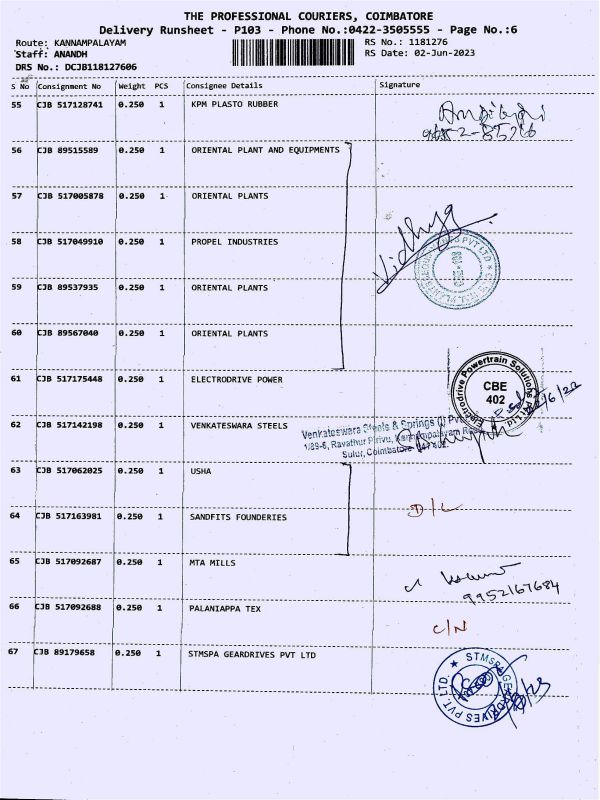 THE PROFESSIONAL COURIERS, COIMBATORE
Delivery Runsheet - P103 - Phone No.:0422-3505555 - Page No.:6
Route: KANNAMPALAYAM RS No.: 1181276
Staff: ANANDH RS Date: 02-Jun-2023
DRS No.: DCJB118127606
S No Consignment No Weight PCS Consignee Details Signature
55 CJB 517128741 0.250 1 KPM PLASTO RUBBER
56 CJB 89515589 0.250 1 ORIENTAL PLANT AND EQUIPMENTS
57 CJB 517005878 0.250 1 ORIENTAL PLANTS
58 CJB 517049910 0.250 1 PROPEL INDUSTRIES
Vidhya
59 CJB 89537935 0.250 1 ORIENTAL PLANTS
60 CJB 89567040 0.250 1 ORIENTAL PLANTS
61 CJB 517175448 0.250 1 ELECTRODRIVE POWER
Electrodrive Powertrain Solutions Pvt Ltd
CBE
402
62 CJB 517142198 0.250 1 VENKATESWARA STEELS
Venkateswara Steels & Springs (I) Pvt
1/89-6, Ravathur Pirivu, Kannampalayam
Sulur, Coimbatore
63 CJB 517062025 0.250 1 USHA
64 CJB 517163981 0.250 1 SANDFITS FOUNDERIES D/L
65 CJB 517092687 0.250 1 MTA MILLS
9952167684
66 CJB 517092688 0.250 1 PALANIAPPA TEX C/N
67 CJB 89179658 0.250 1 STMSPA GEARDRIVES PVT LTD
STMSPA GEARDRIVES PVT. LTD.